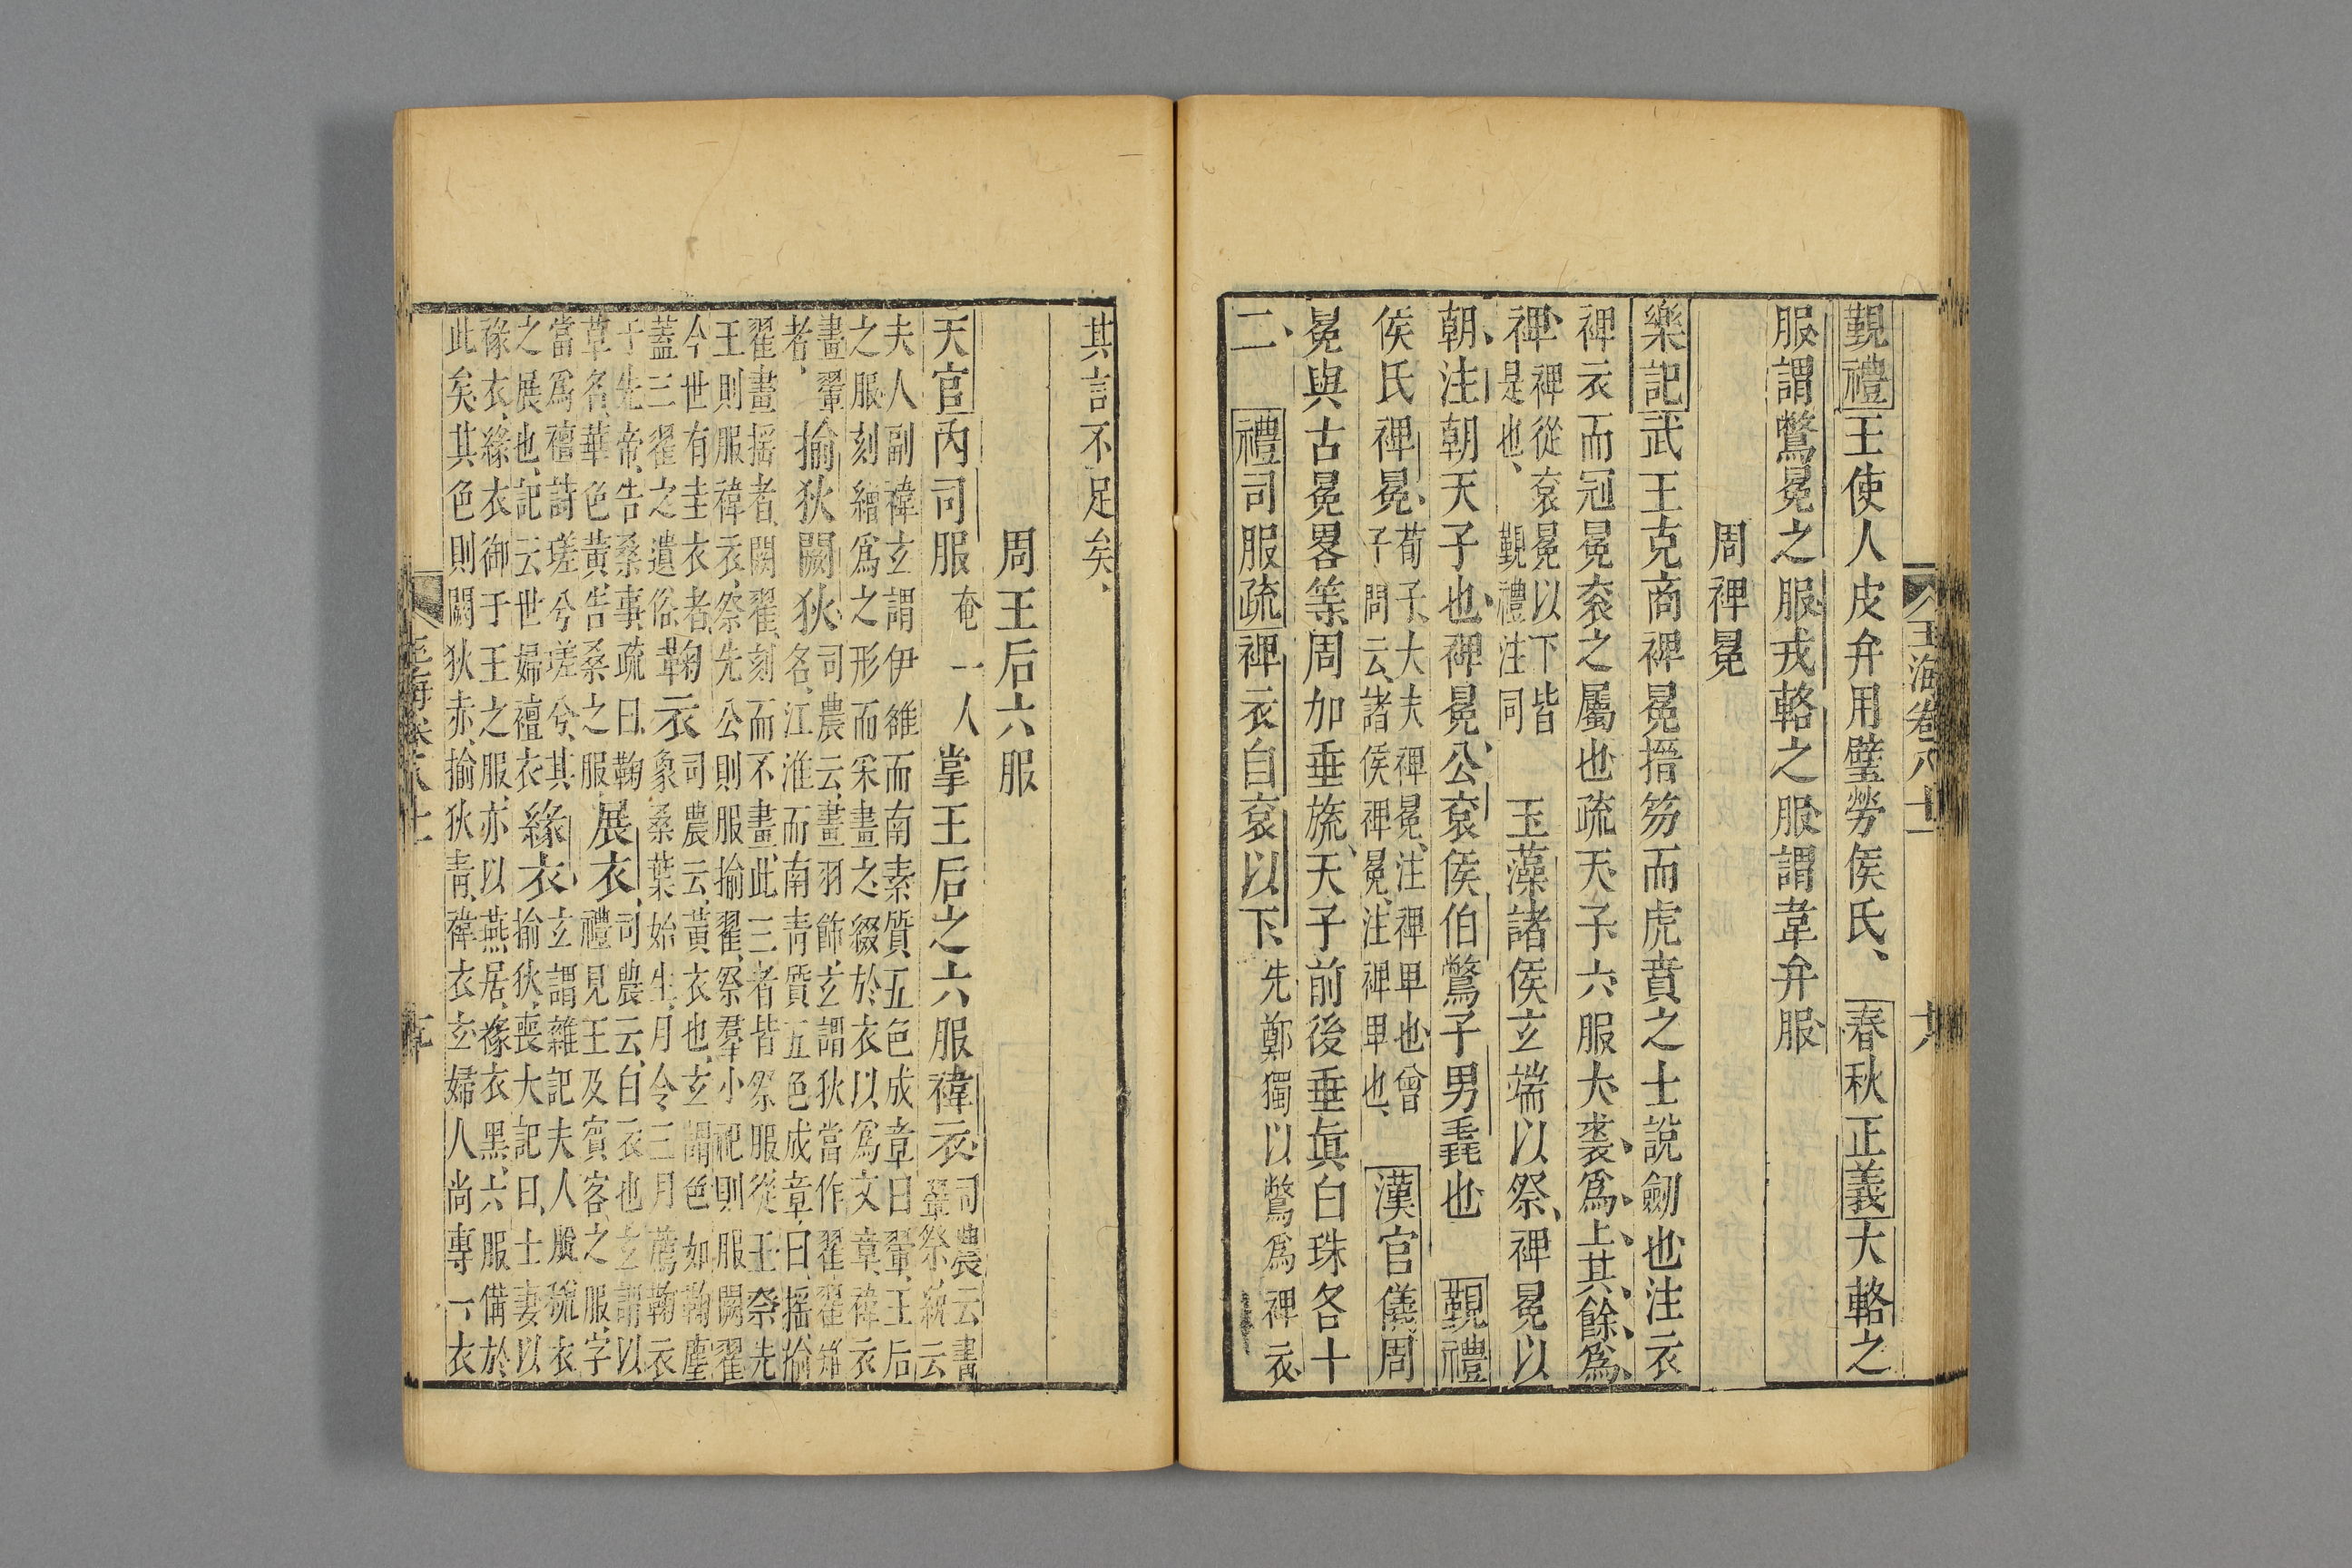 玉海卷八十二
覲禮王使人皮弁用璧勞侯氏、春秋正義大輅之
服謂鷩冕之服戎輅之服謂韋弁服
周裨冕
樂記武王克商裨冕搢笏而虎賁之士說劒也注衣
裨衣而冠冕衮之屬也疏天子六服大裘爲上、其餘爲
裨、裨從衮冕以下皆
是也、覲禮注同
玉藻諸侯玄端以祭、裨冕以
朝、注朝天子也、裨冕、公衮侯伯鷩子男毳也覲禮
侯氏裨冕、
荀子、大夫裨冕、注裨卑也曾
子問云、諸侯裨冕、注裨卑也、
漢官儀周
冕與古冕畧等、周加垂旒、天子前後垂眞白珠各十
二、禮司服疏裨衣自衮以下、先鄭獨以鷩爲裨衣、
其言不足矣、
周王后六服
天官內司服奄一人掌王后之六服褘衣、
司農云書
翬祭統云
夫人副褘玄謂伊雒而南素質五色成章曰翬、王后
之服刻繒爲之形而采畫之綴於衣以爲文章、褘衣
畫翬
者、
揄狄闕狄、
司農云、畫羽飾、玄謂狄當作翟翟雉
名、江淮而南青質五色成章、曰、揺、揄
翟畫揺者、闕翟、刻而不畫、此三者皆祭服從王祭先
王則服褘衣、祭先公則服揄翟、祭羣小祀則服闕翟
今世有圭衣者、
蓋三翟之遺俗
鞠衣
司農云、黃衣也、玄謂色如鞠塵
象桑葉始生、月令三月薦鞠衣
于先帝、告桑事、疏曰、鞠
草名、華色黃、告桑之服、
展衣、
司農云、白衣也玄謂以
禮見王及賓客之服、字
當爲襢、詩瑳兮瑳兮、其
之展也、記云世婦襢衣
緣衣、
玄謂雜記夫人服稅衣
揄狄、喪大記曰、士妻以
褖衣、緣衣御于王之服、亦以燕居、褖衣黑、六服備於
此矣、其色則闕狄赤、揄狄青、褘衣玄婦人尚專一衣